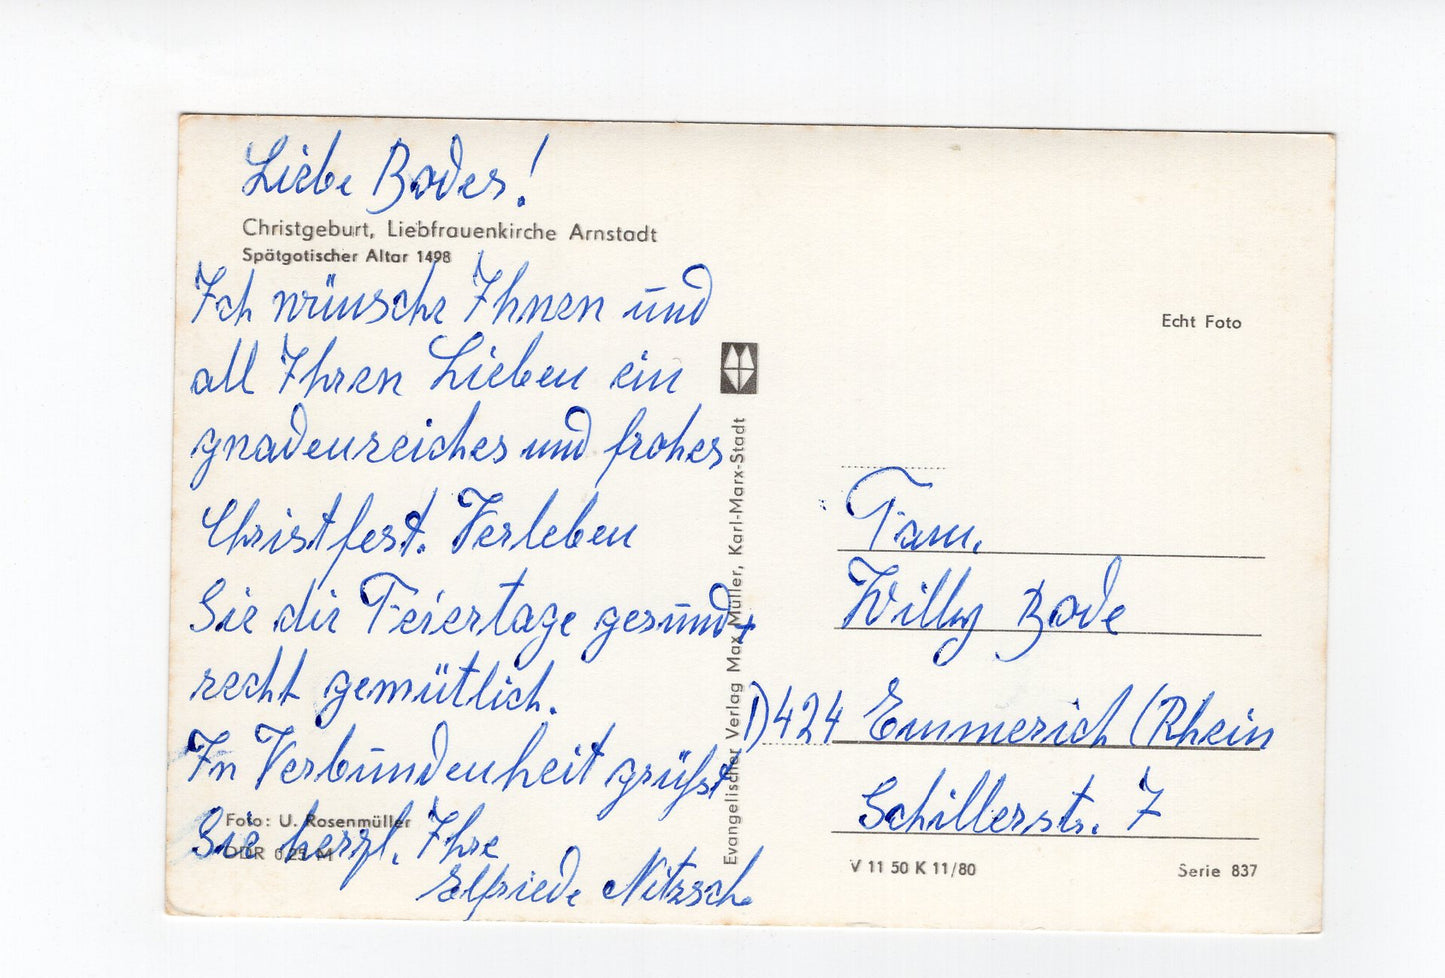 Liebe Bodes!
Christgeburt, Liebfrauenkirche Arnstadt
Spätgotischer Altar 1498
Ich wünsche Ihnen und
all Ihren Lieben ein
gnadenreiches und frohes
Christfest. Verleben
Sie die Feiertage gesund +
recht gemütlich.
In Verbundenheit grüßt
Sie herzl. Ihre
Elfriede Nitzsche
Foto: U. Rosenmüller
DDR 0.25 M
Evangelischer Verlag Max Müller, Karl-Marx-Stadt
Echt Foto
Fam.
Willy Bode
D) 424 Emmerich (Rhein
Schillerstr. 7
V 11 50 K 11/80
Serie 837